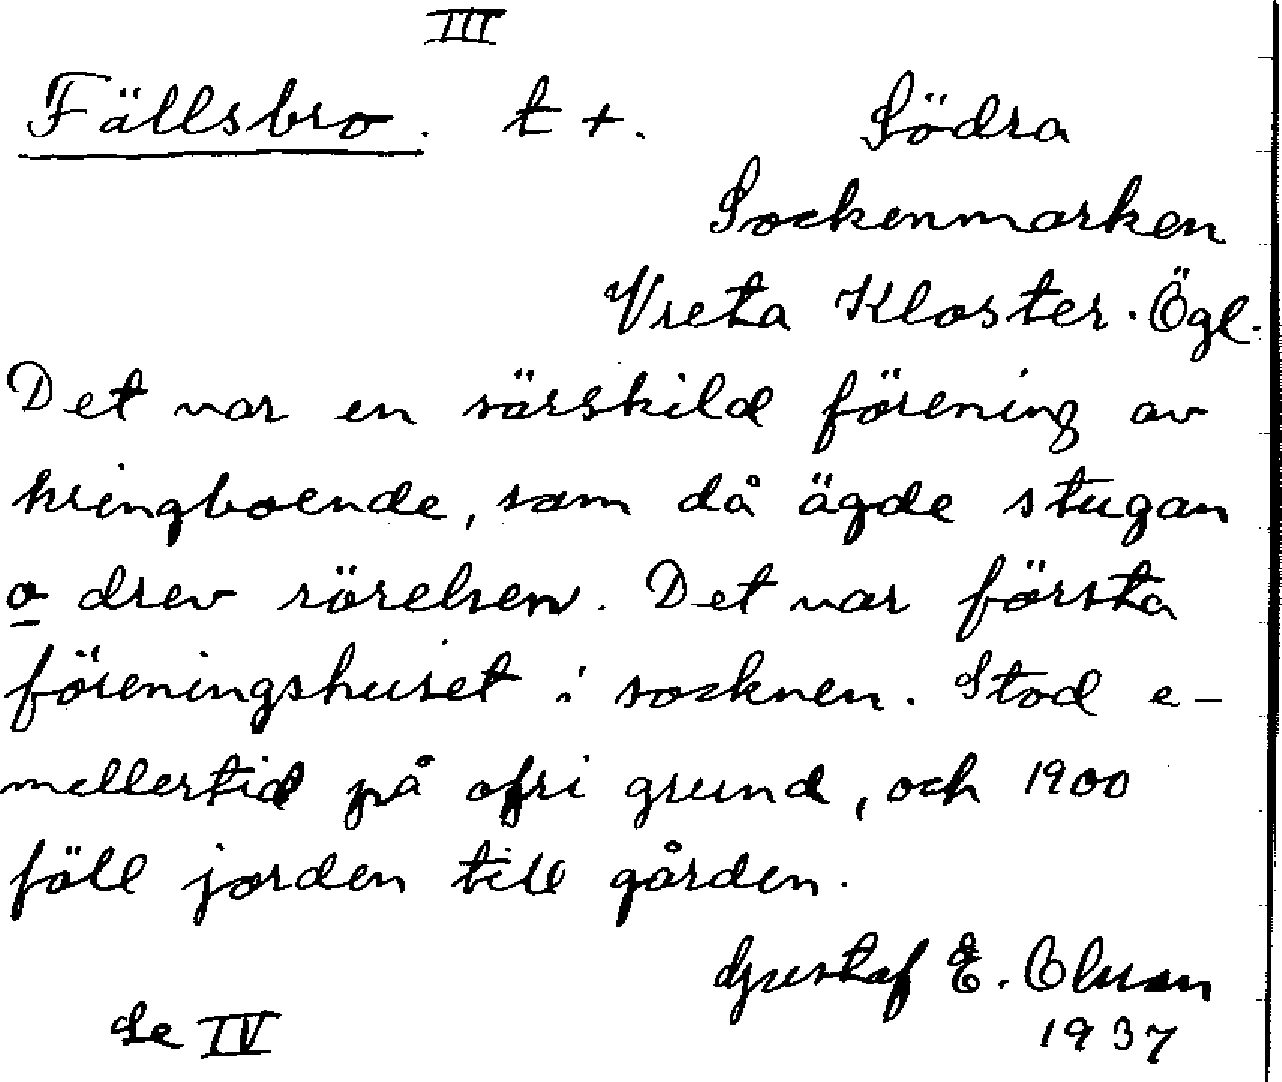 III
Fällsbro. t +. Södra
Sockenmarken
Vreta Kloster. Ögl.
Det var en särskild förening av
kringboende, som då ägde stugan
o drev rörelsen. Det var första
föreningshuset i socknen. Stod e-
mellertid på ofri grund, och 1900
föll jorden till gården.
Gustaf E. Olsson
Se IV 1937